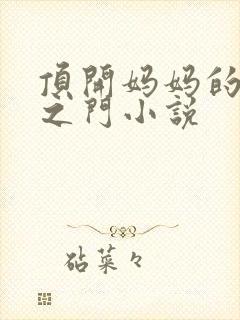 頂開妈妈的
之門小説
砧菜々